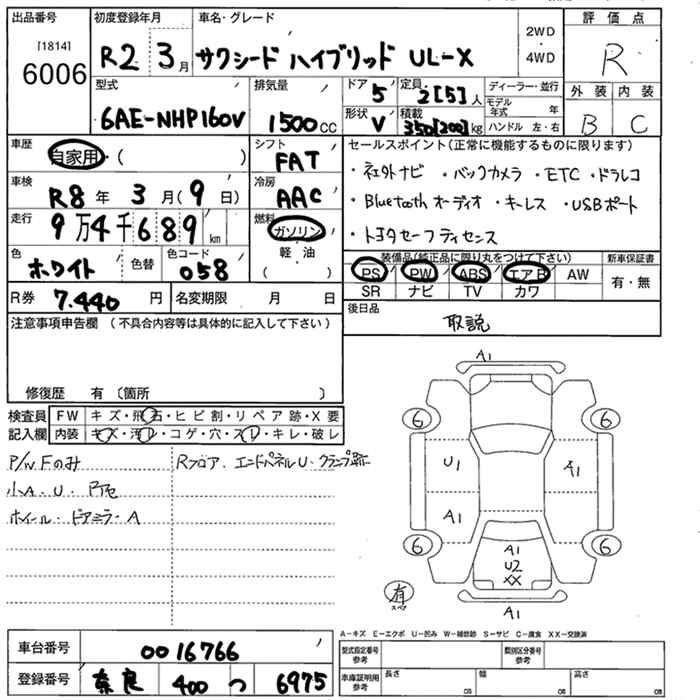 出品番号
[1814]
6006
初度登録年月
R2 3月
車名・グレード
サクシード ハイブリッド UL-X
2WD
・
4WD
評価点
R
外装 内装
B C
型式
6AE-NHP160V
排気量
1500cc
ドア
5
定員
2[5]人
形状
V
積載
350[200]kg
ディーラー・並行
モデル年式 年
ハンドル 左・右
車歴
自家用・( )
シフト
FAT
車検
R8年3月(9日)
冷房
AAC
走行
9万4千689km
燃料
ガソリン
軽油
( )
色
ホワイト
色替
色コード
058
R券 7.440円
名変期限 月 日
セールスポイント(正常に機能するものに限ります)
・社外ナビ ・バックカメラ ・ETC ・ドラレコ
・Bluetoothオーディオ ・キーレス ・USBポート
・トヨタセーフティセンス
装備品(純正品に限り丸をつけて下さい)
PS PW ABS エアB AW
SR ナビ TV カワ
新車保証書
有・無
後日品
取説
注意事項申告欄(不具合内容等は具体的に記入して下さい)
修復歴 有〔箇所 〕
検査員記入欄
FW キズ・飛石・ヒビ割・リペア跡・X要
内装 キズ・汚レ・コゲ・穴・スレ・キレ・破レ
P/W Fのみ
小A.U.
ホイール・ドアミラーA
Rフロア.エンドパネルU.クランプ跡
A1
6 6
U1 A1
A1
6 6
A1
U2
XX
A1
有
スペア
A-キズ E-エクボ U-凹み W-補修跡 S-サビ C-腐食 XX-交換済
車台番号 0016766
登録番号 奈良 400 つ 6975
型式指定番号 参考
類別区分番号 参考
車庫証明用 参考
長さ cm
幅 cm
高さ cm